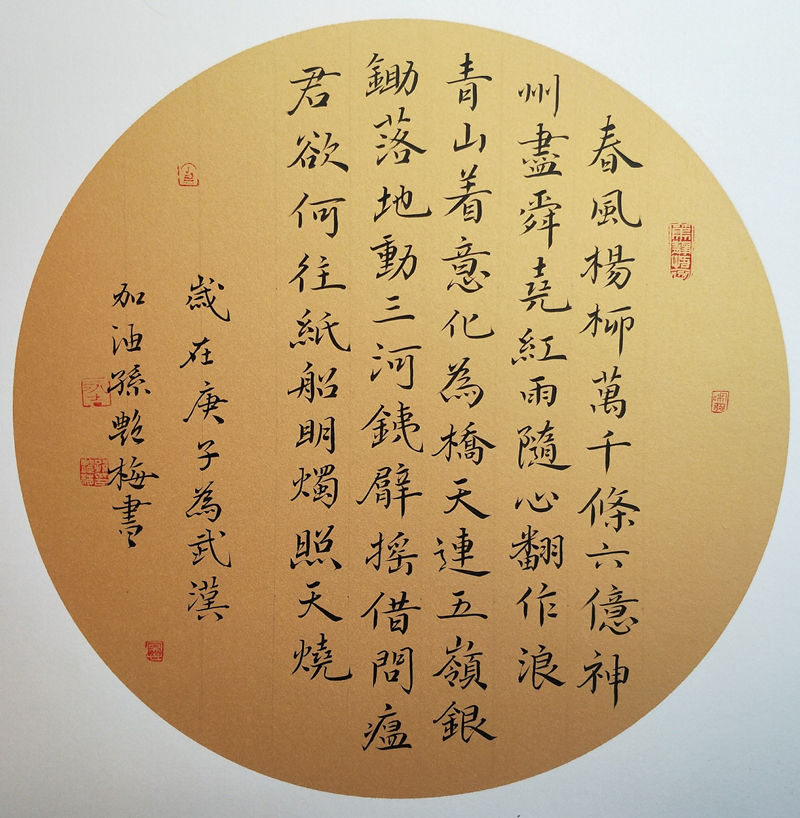 春風楊柳萬千條六億神
州盡舜堯紅雨隨心翻作浪
青山着意化為橋天連五嶺銀
鋤落地動三河鐵臂搖借問瘟
君欲何往紙船明燭照天燒
歲在庚子為武漢
加油孫艷梅書